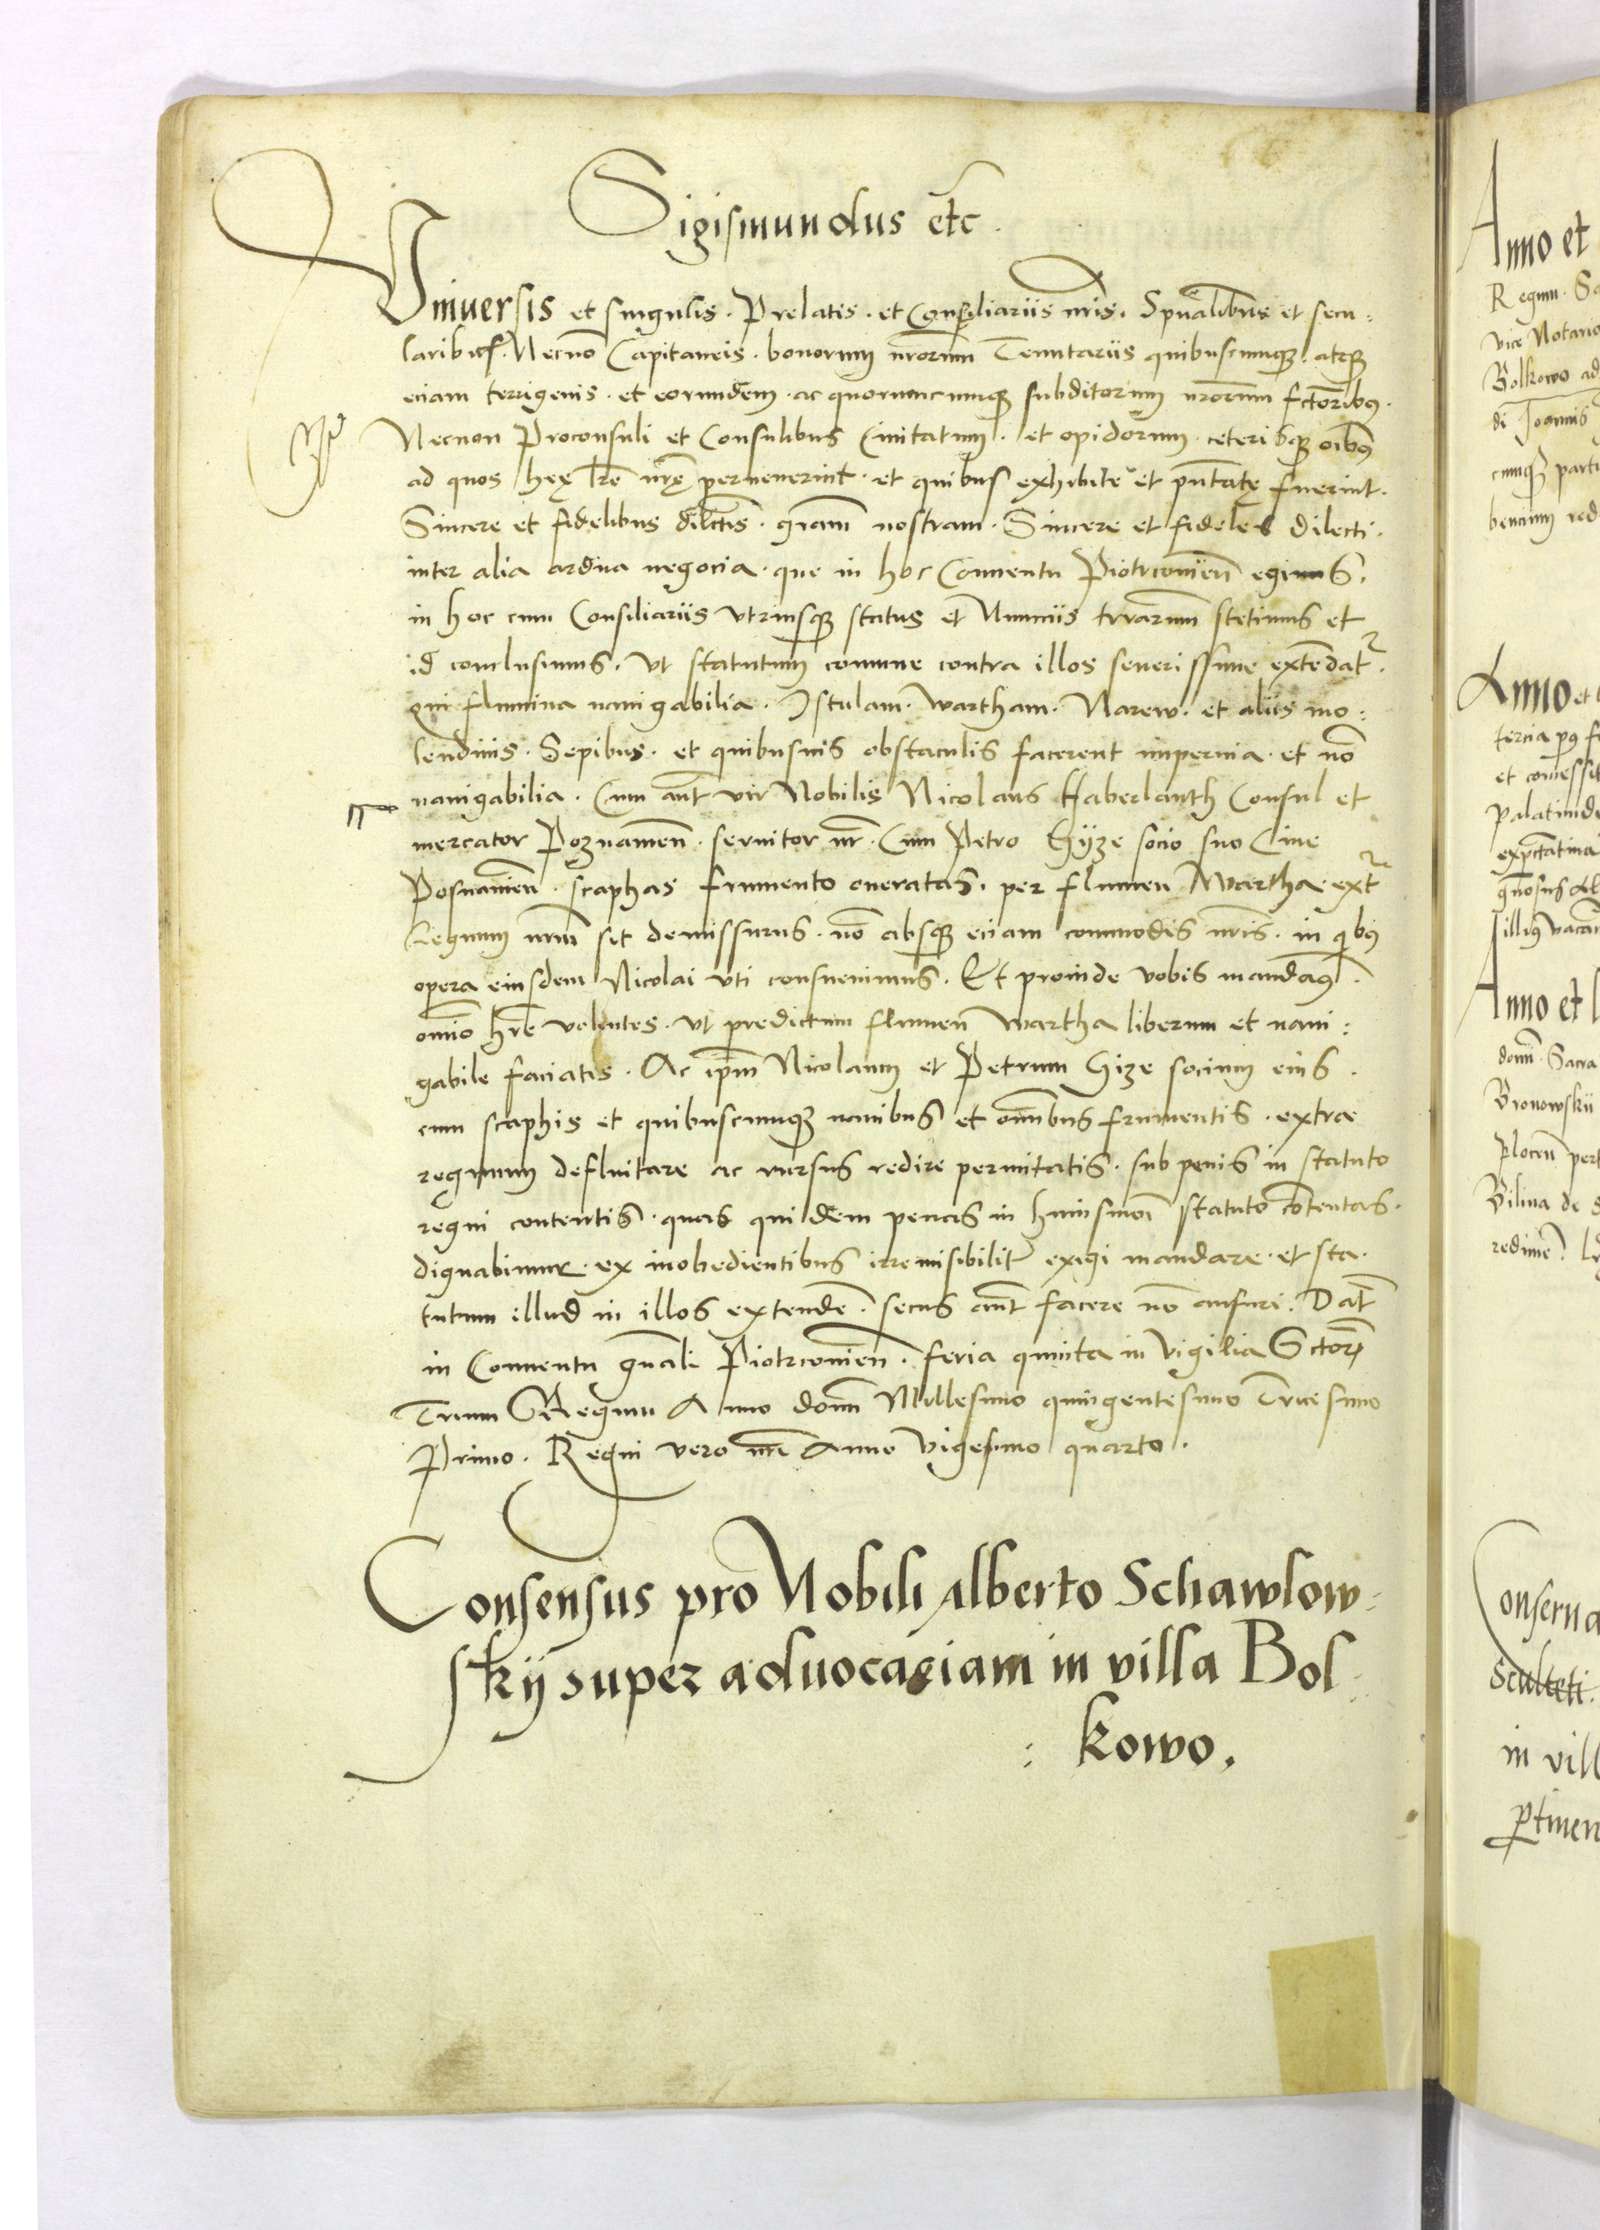 Sigismundus etc.
Vniuersis et singulis. Prelatis. et Consiliariis nris. Spualibus et secu:
laribus. Necno Capitaneis. bonorum nrorum Tenutariis quibuscumque. atque
eciam terrigenis. et eorundem. ac quorumcumque subditorum nrorum fctoribus.
Necnon Proconsuli et Consulibus Ciuitatum. et opidorum. ceterisque oibus
ad quos heę lre nrę peruenerint. et quibus exhibite et pntatę fuerint.
Sincere et fidelibus dilctis. gram nostram. Sincere et fideles dilecti.
inter alia ardua negocia. que in hoc Conuentu Piotrconien egimus.
in hoc cum Consiliariis vtriusque status et Nunciis trrarum stetimus et
id conclusimus. Vt statutum comune contra illos seuerissime extendat
qui flumina nauigabilia. Istulam. Wartham. Narew. et aliis mo:
lendinis. Sepibus. et quibusuis obstaculis facerent imperuia. et no
nauigabilia. Cum aut vir Nobilis Nicolaus Haberlanth Consul et
mercator Poznamen. seruitor nr. Cum Petro Hyze socio suo Ciue
Posnanien. scaphas frumento oneratas. per flumen Wartha. extr
Regnum nrm sit demissurus. no absque eciam commodis nris. in quibus
opera eiusdem Nicolai vti consueuimus. Et proinde vobis mandamus.
omnio hre volentes. vt predictum flumen Wartha liberum et naui:
gabile faciatis. Ac ipm Nicolaum et Petrum Hize socium eius.
cum scaphis et quibuscumque nauibus et omnibus frumentis. extra
regnum defluitare ac rursus redire permitatis. sub penis in statuto
regni contentis. quas quidem penas in huiusmoi statuto cotentas.
dignabimur. ex inobedientibus irremisibilit exigi mandare. et sta.
tutum illud in illos extende. secus aut facere no ausuri. Dat
in Conuentu gnali Piotrconien. feria quinta in Vigilia Sctor
Trium Regum Anno domi Millesimo quingentesimo Tricesimo
Primo. Regni vero nri Anno Vigesimo quarto.
Consensus pro Nobili Alberto Schawlow:
skij super aduocaciam in villa Bol
: kowo.
Anno et
Regnu. Sa
vice Notario
Bolkowo ad
di Joannis
cumque parti
Anno et
et concessit
Palatinide
Anno et l
domi. Sacra
Bronowskii
Bilina de
Conserua
Sculteti.
in vill
ptinen